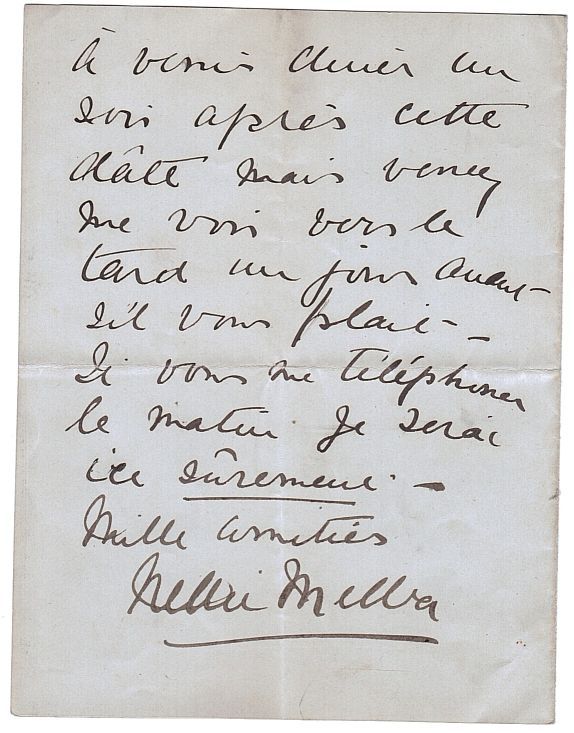 à venir diner un
soir après cette
dâte mais venez
me voir vers le
tard un jour avant
s'il vous plait —
Si vous me téléphonez
le matin je serai
ici sûrement. —
Mille Amitiés
Nellie Melba